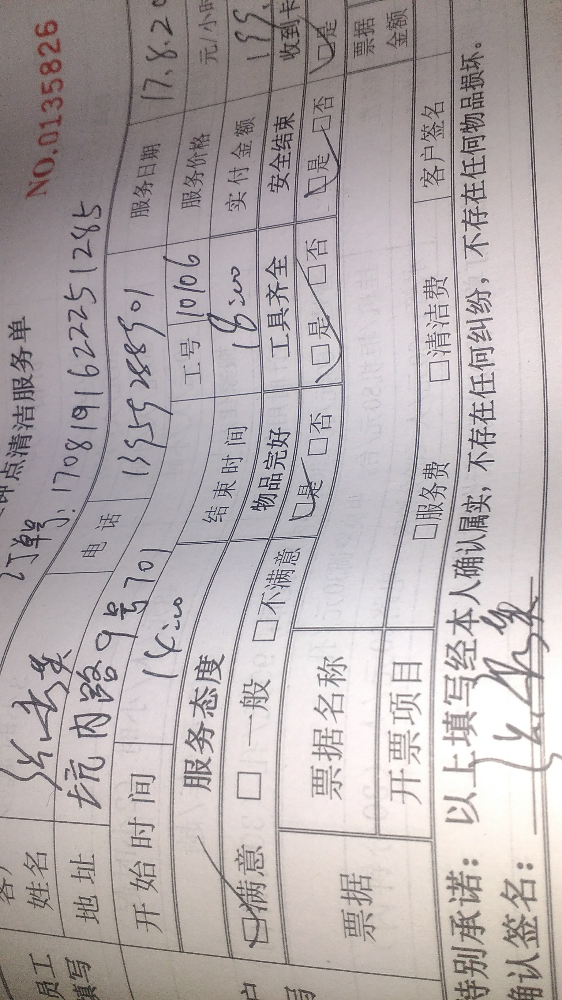 NO.0135826
钟点清洁服务单
订单号:170819162225 1285
客户姓名 电话 13959288901 服务日期 17.8.20
地址 坑内路9号701 工号 10106 服务价格 元/小时
开始时间 14:00 结束时间 18:00 实付金额 199.
服务态度 物品完好 工具齐全 安全结束 收到卡
☑满意 □一般 □不满意 ☑是 □否 ☑是 □否 ☑是 □否 ☑是
票据 票据名称 票据金额
开票项目 □服务费 □清洁费 客户签名
特别承诺：以上填写经本人确认属实，不存在任何纠纷，不存在任何物品损坏。
确认签名：
员工填写